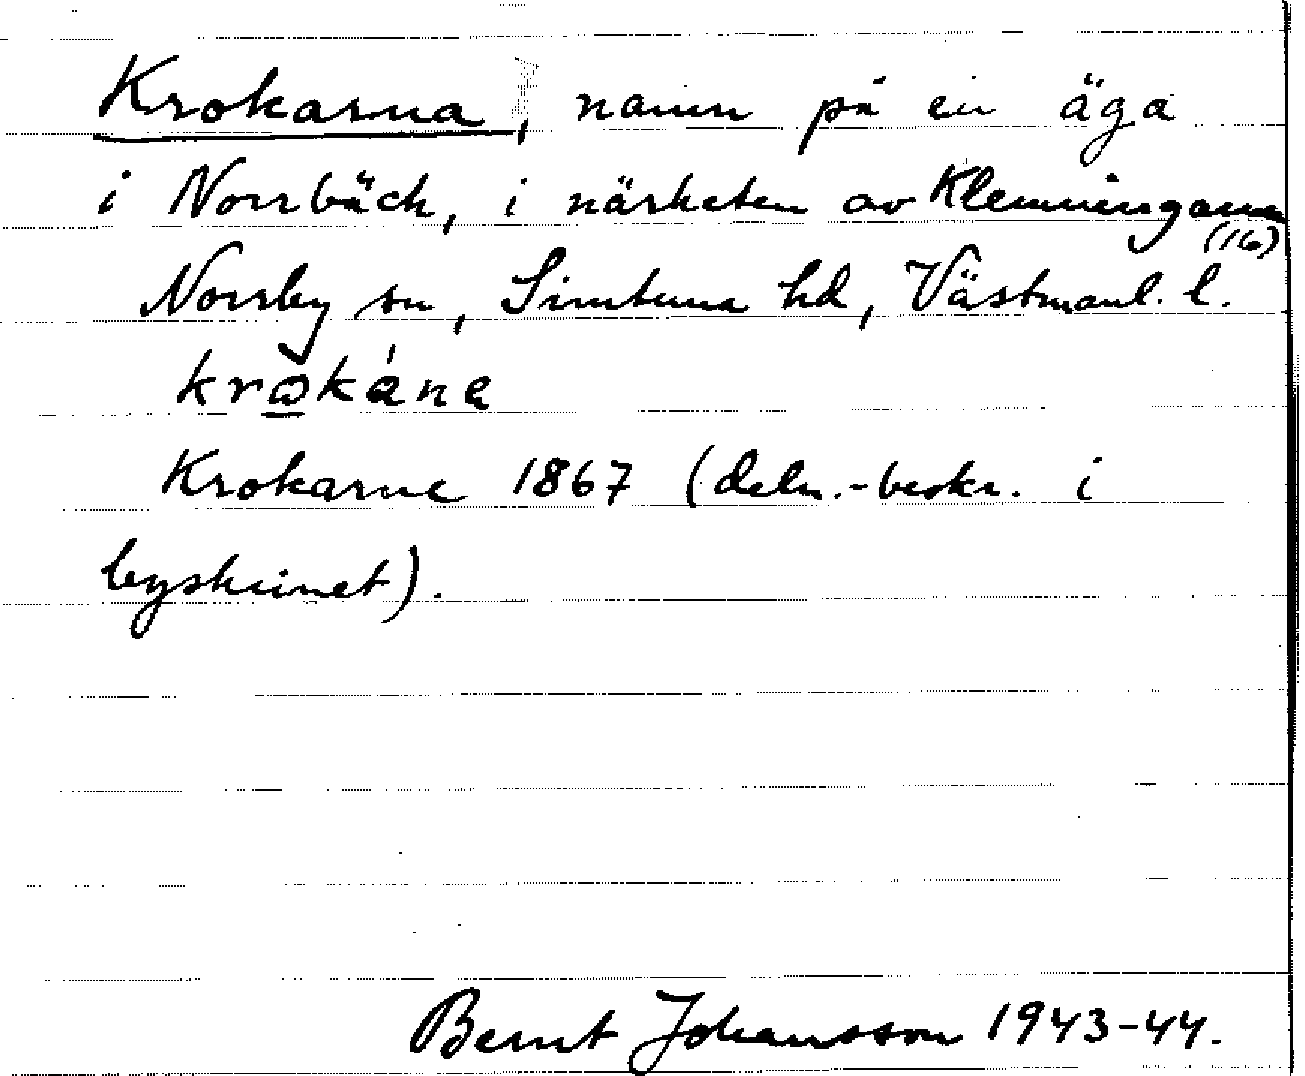 Krokarna, namn på en äga
i Norrbäck, i närheten av Klemmingarna
(16)
Norrby sn, Simtuna hd, Västmanl. l.
kròkána
Krokarne 1867 (deln.-beskr. i
byskrinet).
Bernt Johansson 1943-44.